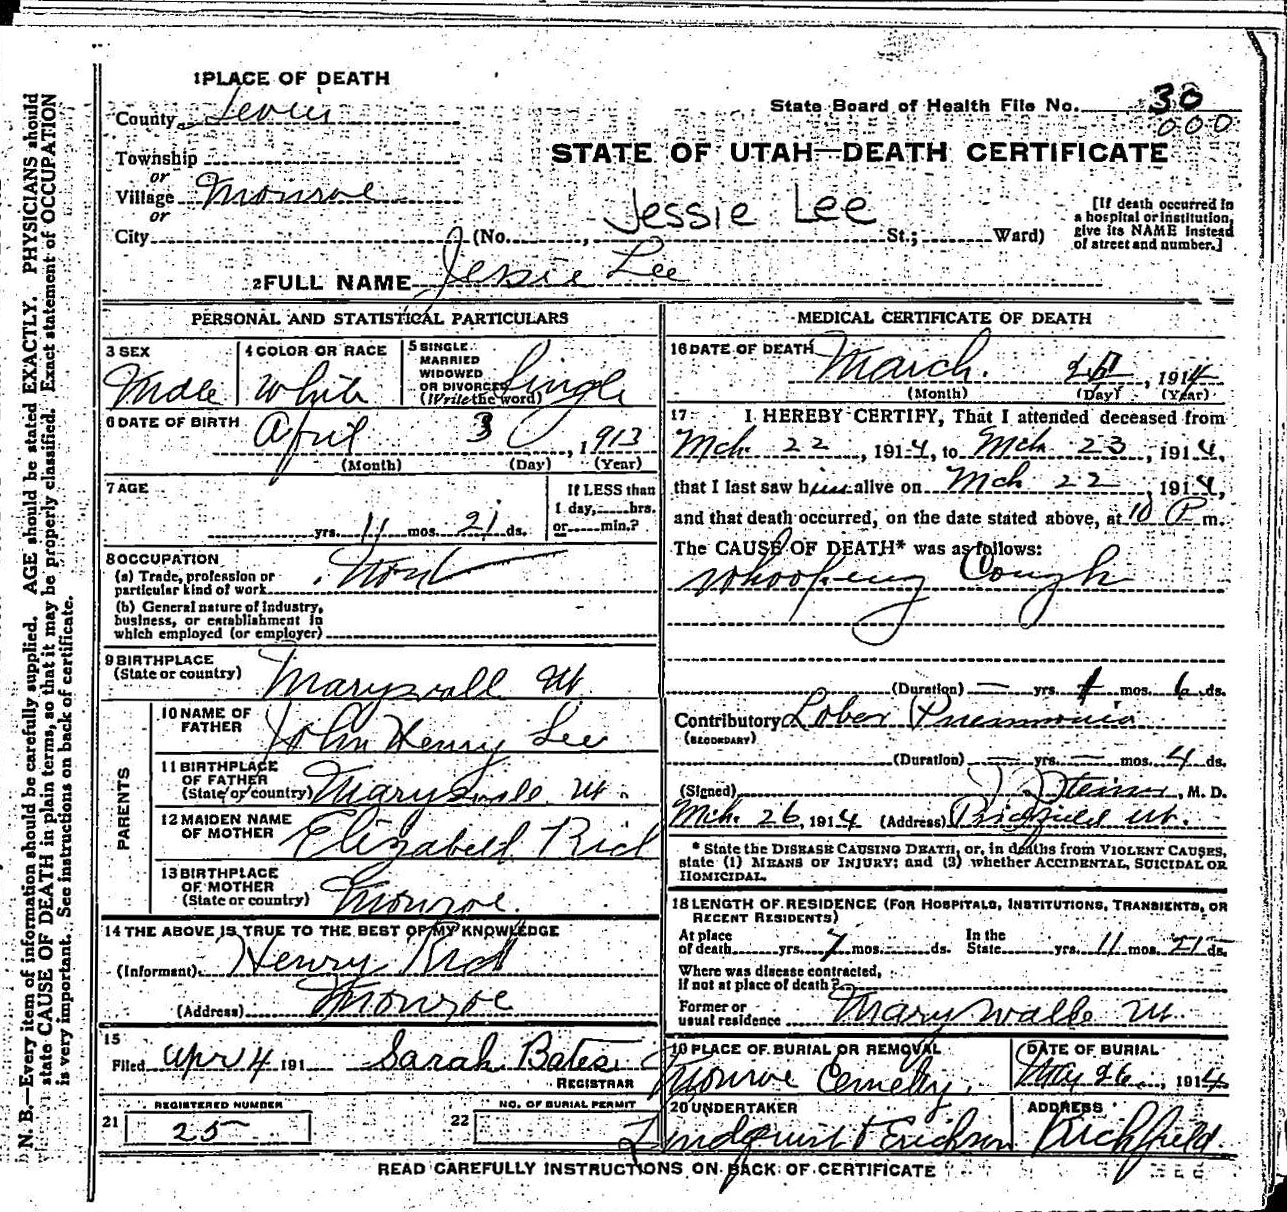 1 PLACE OF DEATH
County Sevier
State Board of Health File No. 30
000
STATE OF UTAH—DEATH CERTIFICATE
Township
or
Village Monroe
or
City (No. , Jessie Lee St.; Ward)
[If death occurred in
a hospital or institution,
give its NAME instead
of street and number.]
2 FULL NAME Jessie Lee
PERSONAL AND STATISTICAL PARTICULARS
3 SEX
Male
4 COLOR OR RACE
White
5 SINGLE
MARRIED
WIDOWED
OR DIVORCED
(Write the word) Single
6 DATE OF BIRTH April 3, 1913
(Month) (Day) (Year)
7 AGE
yrs. 11 mos. 21 ds.
If LESS than
1 day, hrs.
or min.?
8 OCCUPATION
(a) Trade, profession or
particular kind of work
(b) General nature of Industry,
business, or establishment in
which employed (or employer)
9 BIRTHPLACE
(State or country) Marysvall Ut
PARENTS
10 NAME OF
FATHER John Henry Lee
11 BIRTHPLACE
OF FATHER
(State or country) Marysvale Ut.
12 MAIDEN NAME
OF MOTHER Elizabeld
13 BIRTHPLACE
OF MOTHER
(State or country) Monroe.
14 THE ABOVE IS TRUE TO THE BEST OF MY KNOWLEDGE
(Informant) Henry
(Address) Monroe
15
Filed Apr 4 191 Sarah Bates
REGISTRAR
REGISTERED NUMBER
21 25
NO. OF BURIAL PERMIT
22
MEDICAL CERTIFICATE OF DEATH
16 DATE OF DEATH March. , 1914
(Month) (Day) (Year)
17 I HEREBY CERTIFY, That I attended deceased from
Mch. 22, 1914, to Mch. 23, 1914,
that I last saw him alive on Mch 22, 1914,
and that death occurred, on the date stated above, at 10 P m.
The CAUSE OF DEATH* was as follows:
Whoopeng Cough
(Duration) — yrs. 1 mos. 6 ds.
Contributory Lober Pneumonia
(SECONDARY)
(Duration) — yrs. — mos. 4 ds.
(Signed) , M. D.
Mch. 26, 1914 (Address) Ut.
* State the DISEASE CAUSING DEATH, or, in deaths from VIOLENT CAUSES,
state (1) MEANS OF INJURY; and (2) whether ACCIDENTAL, SUICIDAL OR
HOMICIDAL.
18 LENGTH OF RESIDENCE (FOR HOSPITALS, INSTITUTIONS, TRANSIENTS, OR
RECENT RESIDENTS)
At place
of death yrs. 7 mos. ds.
In the
State yrs. 11 mos. 21 ds.
Where was disease contracted,
if not at place of death?
Former or
usual residence Maryswalle Ut.
19 PLACE OF BURIAL OR REMOVAL
Monroe Cemetery.
DATE OF BURIAL
26, 1914
20 UNDERTAKER
Lindquist & Erickson
ADDRESS
Richfield.
READ CAREFULLY INSTRUCTIONS ON BACK OF CERTIFICATE
N. B.—Every item of information should be carefully supplied. AGE should be stated EXACTLY. PHYSICIANS should
state CAUSE OF DEATH in plain terms, so that it may be properly classified. Exact statement of OCCUPATION
is very important. See instructions on back of certificate.